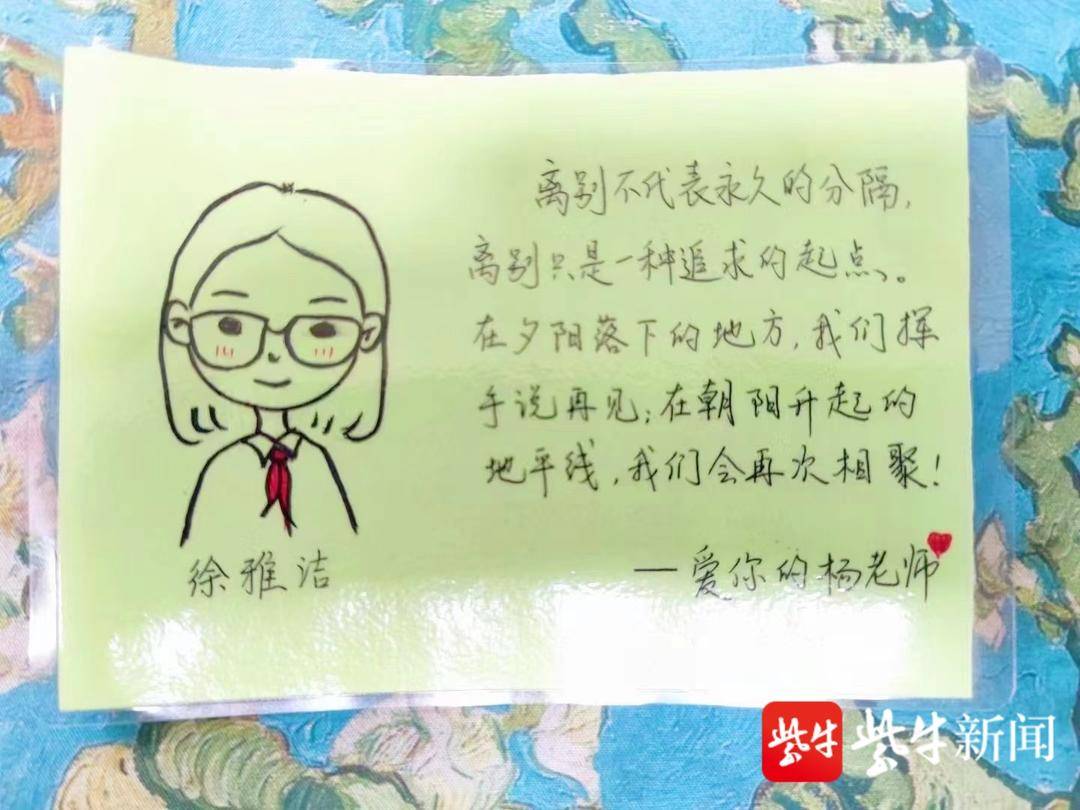 离别不代表永久的分隔,
离别只是一种追求的起点、。
在夕阳落下的地方,我们挥
手说再见;在朝阳升起的
地平线,我们会再次相聚!
—爱你的杨老师
徐雅洁
紫牛 紫牛新闻